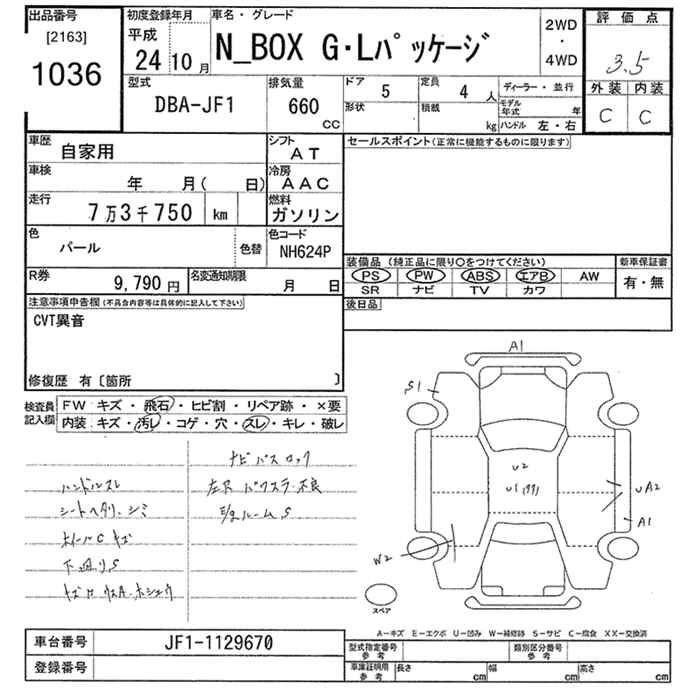 出品番号
[2163]
1036
初度登録年月
平成
24 10 月
車名・グレード
N_BOX G・Lパッケージ
2WD
・
4WD
評価点
3.5
外装 内装
C C
型式
DBA-JF1
排気量
660
CC
ドア
5
形状
定員
4 人
積載
kg
ディーラー・並行
モデル年式 年
ハンドル 左・右
車歴
自家用
シフト
AT
車検
年 月( 日)
冷房
AAC
走行
7万3千750 km
燃料
ガソリン
色
パール
色替
色コード
NH624P
R券
9,790円
名変通知期限
月 日
セールスポイント(正常に機能するものに限ります)
装備品 (純正品に限り○をつけてください)
PS PW ABS エアB AW
SR ナビ TV カワ
新車保証書
有・無
後日品
注意事項申告欄(不具合内容等は具体的に記入して下さい)
CVT異音
修復歴 有〔箇所 〕
検査員記入欄
FW キズ・飛石・ヒビ割・リペア跡・×要
内装 キズ・汚レ・コゲ・穴・スレ・キレ・破レ
ナビ バス ロック
ハンドルスレ
シートヘタリ、シミ
ホイールC キズ
下廻りS
A1
S1
U2
U1
UA2
A1
W2
スペア
A−キズ E−エクボ U−凹み W−補修跡 S−サビ C−腐食 XX−交換済
車台番号
JF1-1129670
登録番号
型式指定番号
参考
類別区分番号
参考
車庫証明用
参考
長さ cm
幅 cm
高さ cm